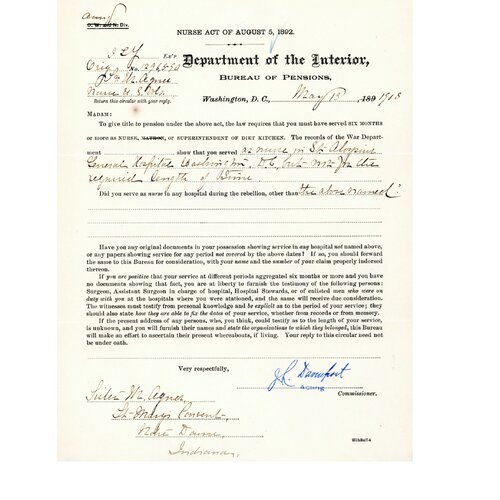 Army
O. W. and N. Div.
NURSE ACT OF AUGUST 5, 1892.
Ex'r
Orig. No. 1296450
Department of the Interior,
M. Agnes
BUREAU OF PENSIONS,
Nurse U.S. Vols
Washington, D. C., May 13, 189 1915
Return this circular with your reply.
MADAM:
To give title to pension under the above act, the law requires that you must have served SIX MONTHS
or more as NURSE, MATRON, or SUPERINTENDENT OF DIET KITCHEN. The records of the War Depart-
ment show that you served as nurse in St. Aloysius
General Hospital Washington, D.C., but not for the
required length of time.
Did you serve as nurse in any hospital during the rebellion, other than the above named?
Have you any original documents in your possession showing service in any hospital not named above,
or any papers showing service for any period not covered by the above dates? If so, you should forward
the same to this Bureau for consideration, with your name and the number of your claim properly indorsed
thereon.
If you are positive that your service at different periods aggregated six months or more and you have
no documents showing that fact, you are at liberty to furnish the testimony of the following persons:
Surgeon, Assistant Surgeon in charge of hospital, Hospital Stewards, or of enlisted men who were on
duty with you at the hospitals where you were stationed, and the same will receive due consideration.
The witnesses must testify from personal knowledge and be explicit as to the period of your service; they
should also state how they are able to fix the dates of your service, whether from records or from memory.
If the present address of any persons, who, you think, could testify as to the length of your service,
is unknown, and you will furnish their names and state the organizations to which they belonged, this Bureau
will make an effort to ascertain their present whereabouts, if living. Your reply to this circular need not
be under oath.
Very respectfully,
Davenport
ACTING
Commissioner.
Sister M. Agnes,
St. Marys Convent,
Notre Dame,
Indiana.